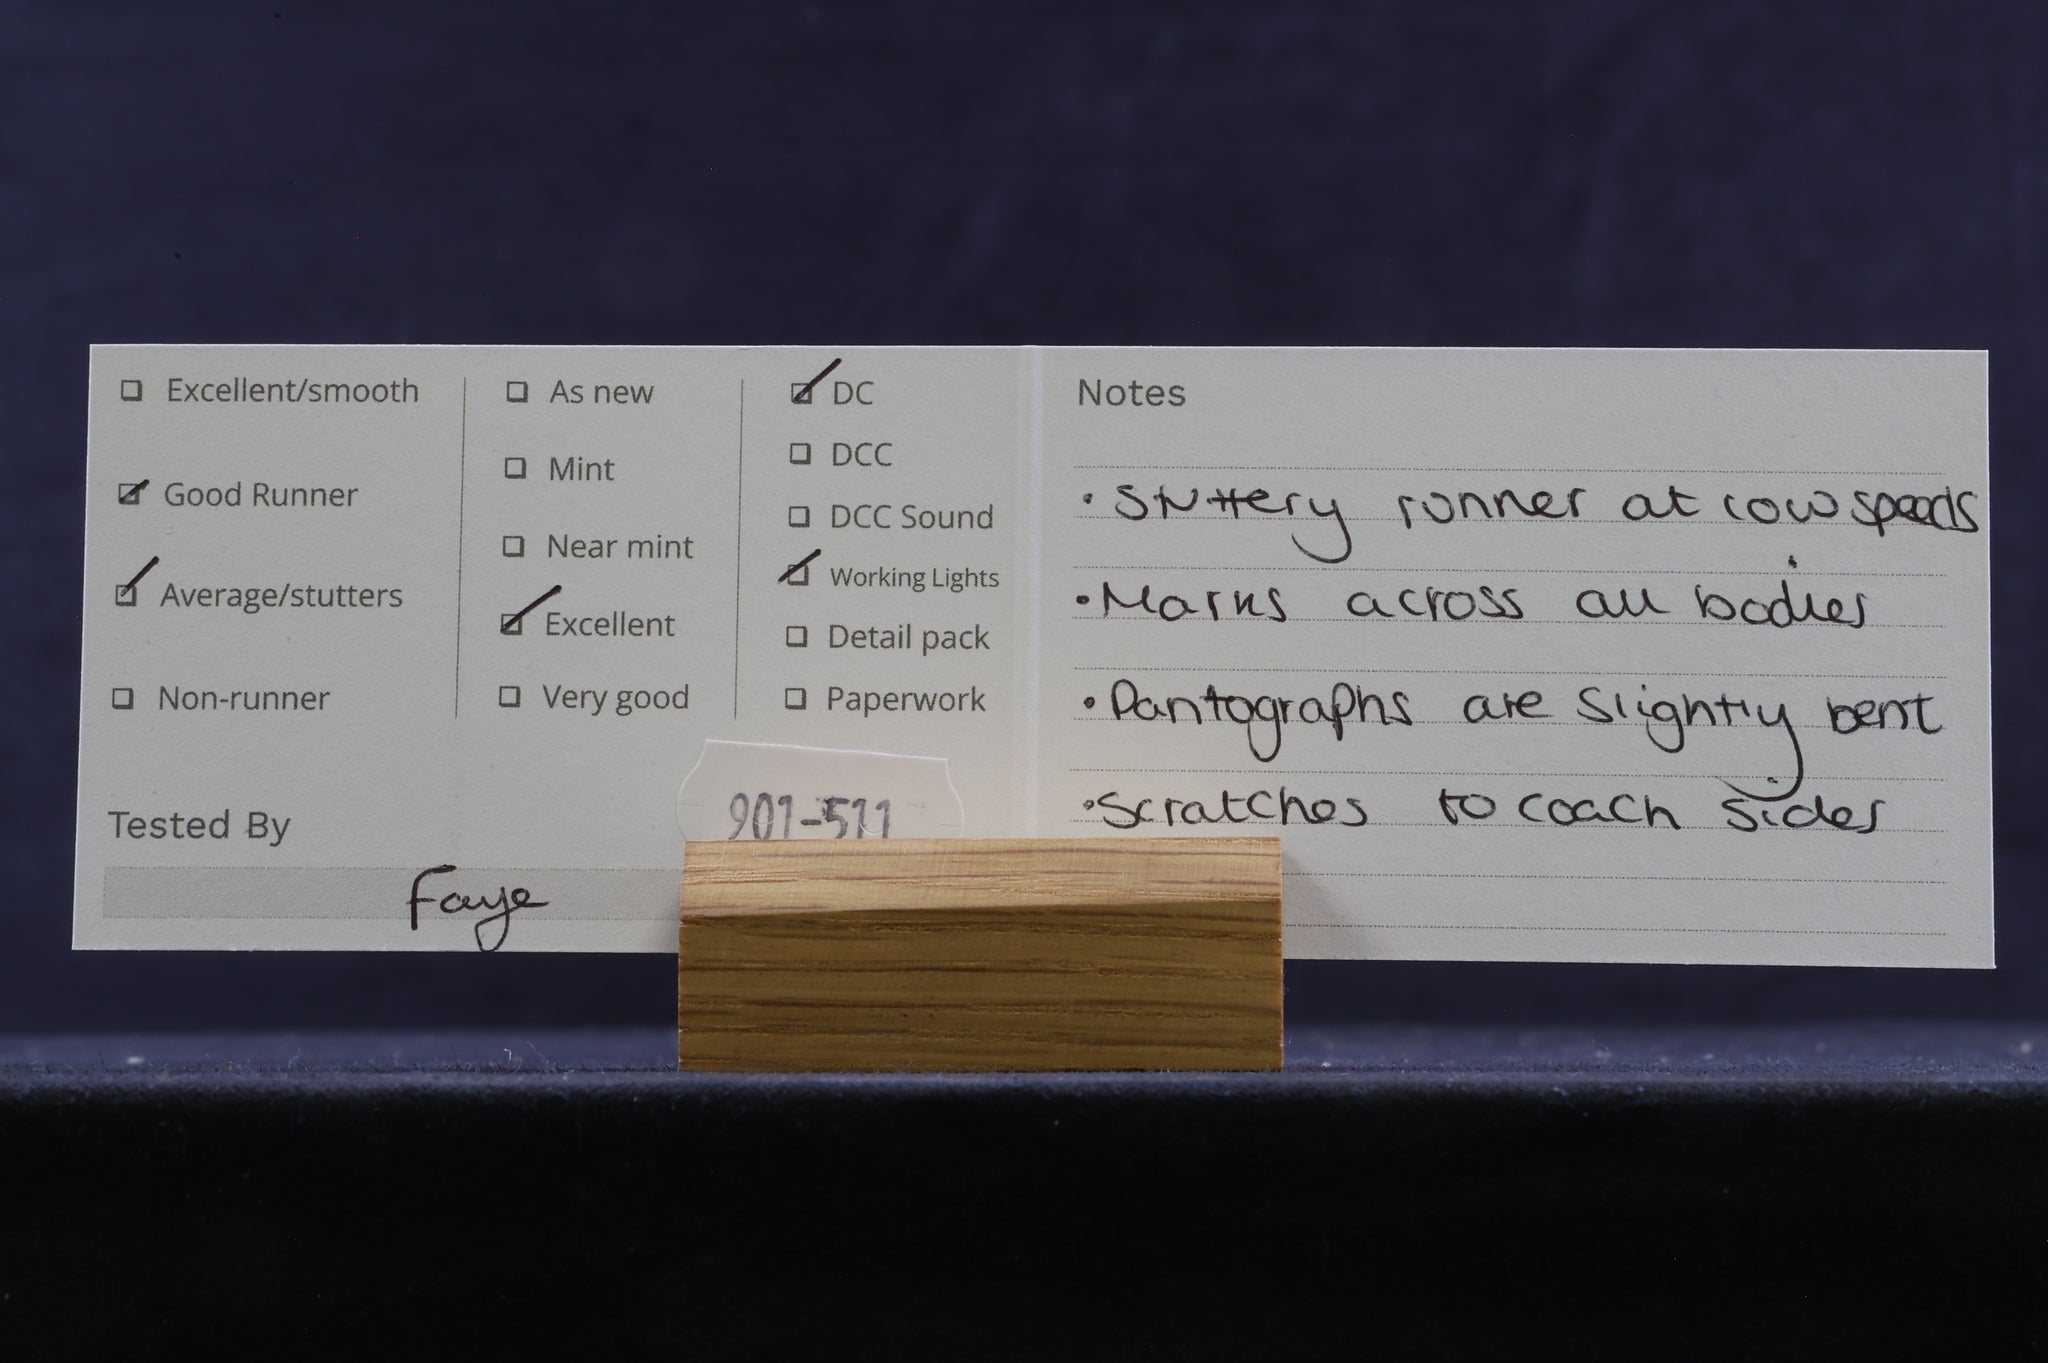 Excellent/smooth
Good Runner
Average/stutters
Non-runner
As new
Mint
Near mint
Excellent
Very good
DC
DCC
DCC Sound
Working Lights
Detail pack
Paperwork
Tested By
Faye
901-511
Notes
• Stuttery runner at low speeds
• Marks across all bodies
• Pantographs are slightly bent
• Scratches to coach sides